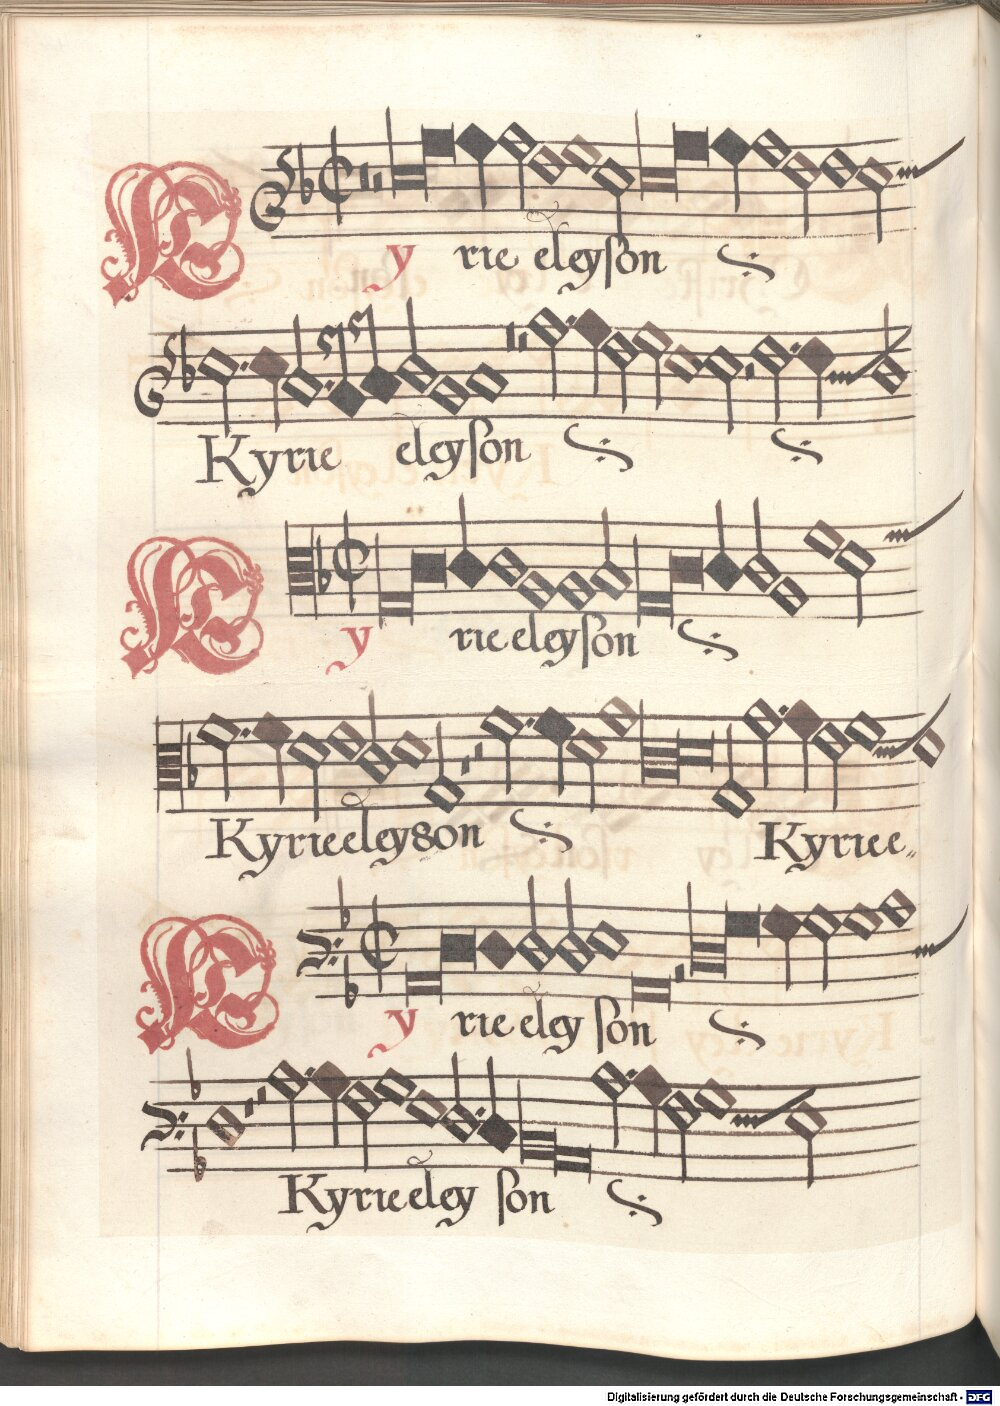 Kyrie eleyson
Kyrie eleyson
Kyrie eleyson
Kyrie eleyson Kyrie e„
Kyrie eley son
Kyrie eley son
Digitalisierung gefördert durch die Deutsche Forschungsgemeinschaft - DFG